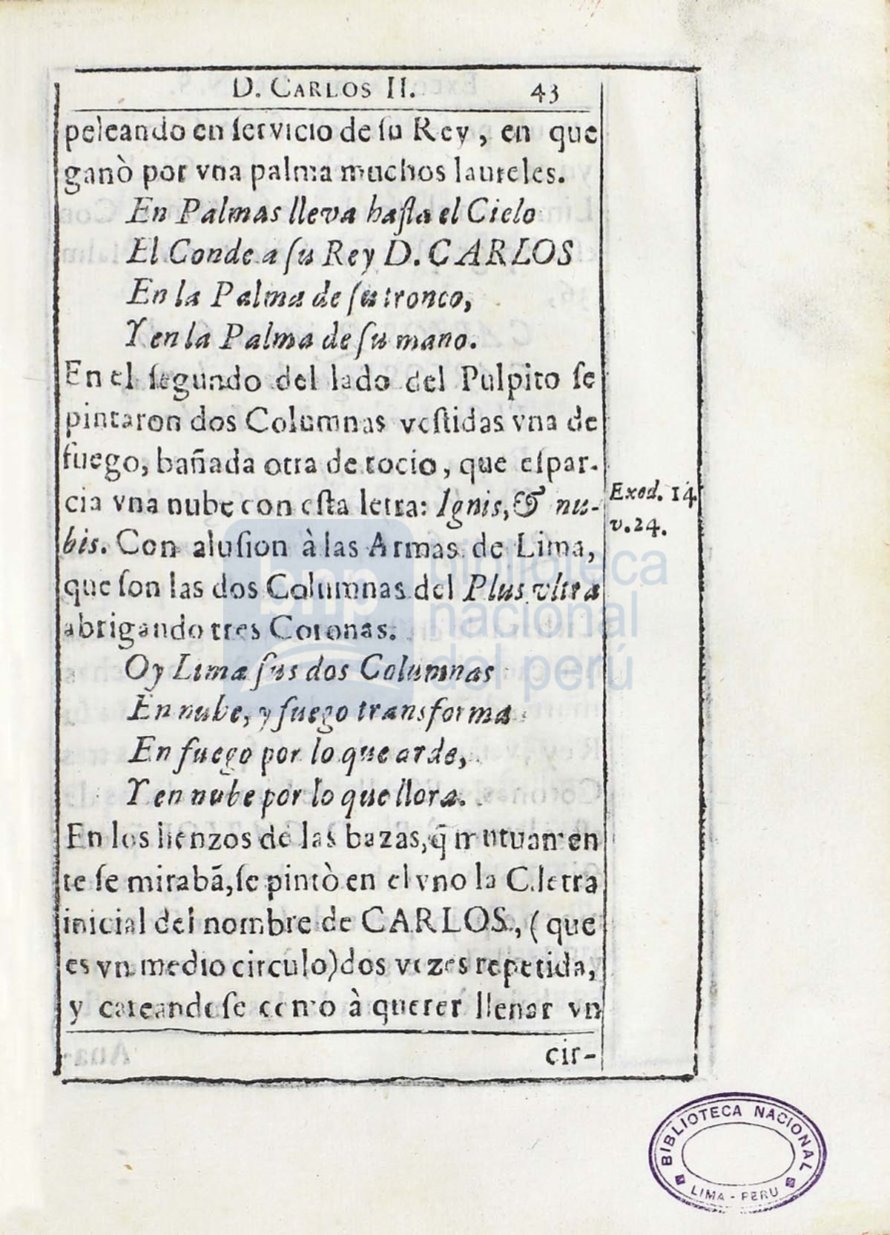 D. CARLOS II. 43
peleando en ſervicio de ſu Rey, en que
ganò por vna palma muchos laureles.
En Palmas lleva haſta el Cielo
El Conde a ſu Rey D. CARLOS
En la Palma de ſu tronco,
Y en la Palma de ſu mano.
En el ſegundo del lado del Pulpito ſe
pintaron dos Columnas veſtidas vna de
fuego, bañada otra de rocio, que eſpar-
cia vna nube con eſta letra: Ignis, & nu-
bis. Con aluſion à las Armas de Lima,
que ſon las dos Columnas del Plus vltra
abrigando tres Coronas.
Exod. 14
v. 24.
Oy Lima ſus dos Columnas
En nube, y fuego transforma
En fuego por lo que arde,
Y en nube por lo que llora.
En los lienzos de las bazas, q̃ mutuamen
te ſe mirabã, ſe pintò en el vno la C. letra
inicial del nombre de CARLOS, (que
es vn medio circulo) dos vezes repetida,
y careandoſe como à querer llenar vn
cir-
bnp biblioteca
nacional
del perú
BIBLIOTECA NACIONAL
LIMA - PERU